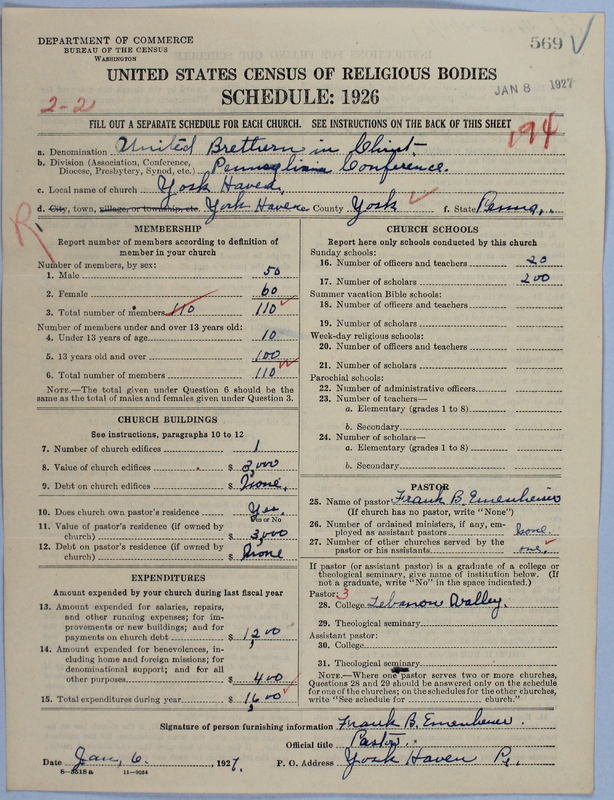 DEPARTMENT OF COMMERCE
BUREAU OF THE CENSUS
WASHINGTON
569
UNITED STATES CENSUS OF RELIGIOUS BODIES
JAN 8 1927
SCHEDULE: 1926
2-2
FILL OUT A SEPARATE SCHEDULE FOR EACH CHURCH. SEE INSTRUCTIONS ON THE BACK OF THIS SHEET
194
a. Denomination United Brethern in Christ
b. Division (Association, Conference, Diocese, Presbytery, Synod, etc.) Pennsylvania Conference.
c. Local name of church York Haven,
d. City, town, village, or township, etc. York Haven County York f. State Penna,
R
MEMBERSHIP
Report number of members according to definition of
member in your church
Number of members, by sex:
1. Male 50
2. Female 60
3. Total number of members 110 110
Number of members under and over 13 years old:
4. Under 13 years of age 10
5. 13 years old and over 100
6. Total number of members 110
NOTE.—The total given under Question 6 should be
same as the total of males and females given under Question 3.
CHURCH BUILDINGS
See instructions, paragraphs 10 to 12
7. Number of church edifices 1
8. Value of church edifices $ 3,000
9. Debt on church edifices $ None.
10. Does church own pastor's residence Yes.
Yes or No
11. Value of pastor's residence (if owned by
church) $ 3,000
12. Debt on pastor's residence (if owned by
church) $ None
EXPENDITURES
Amount expended by your church during last fiscal year
13. Amount expended for salaries, repairs,
and other running expenses; for im-
provements or new buildings; and for
payments on church debt $ 1,200
14. Amount expended for benevolences, in-
cluding home and foreign missions; for
denominational support; and for all
other purposes $ 400
15. Total expenditures during year $ 1,600
CHURCH SCHOOLS
Report here only schools conducted by this church
Sunday schools:
16. Number of officers and teachers 20
17. Number of scholars 200
Summer vacation Bible schools:
18. Number of officers and teachers
19. Number of scholars
Week-day religious schools:
20. Number of officers and teachers
21. Number of scholars
Parochial schools:
22. Number of administrative officers
23. Number of teachers—
a. Elementary (grades 1 to 8)
b. Secondary
24. Number of scholars—
a. Elementary (grades 1 to 8)
b. Secondary
PASTOR
25. Name of pastor Frank B. Emenheiser
(If church has no pastor, write "None")
26. Number of ordained ministers, if any, em-
ployed as assistant pastors None.
27. Number of other churches served by the
pastor or his assistants one,
If pastor (or assistant pastor) is a graduate of a college or
theological seminary, give name of institution below. (If
not a graduate, write "No" in the space indicated.)
Pastor: 3
28. College Lebanon Valley.
29. Theological seminary
Assistant pastor:
30. College
31. Theological seminary
NOTE.—Where one pastor serves two or more churches,
Questions 28 and 29 should be answered only on the schedule
for one of the churches; on the schedules for the other churches,
write "See schedule for church."
Signature of person furnishing information Frank B. Emenheiser.
Official title Pastor.
Date Jan, 6, 1927. P. O. Address York Haven Pa.
8-5518a 11-9024